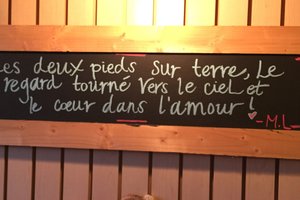 Les deux pieds sur terre, Le
regard tourné vers le ciel et
le cœur dans l'amour !
- M.L